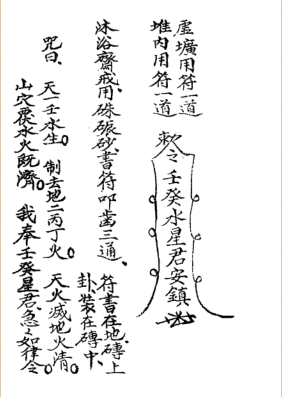 虛壙用符一道
堆內用符一道
敕令壬癸水星君安鎮
沐浴齋戒用硃碾砂書符叩齒三通、
符書在地磚上
卦裝在磚中、
咒曰、天一壬水生。制去地二丙丁火。天火滅地火清。
山穴聚水火既濟。我奉壬癸星君急急如律令。